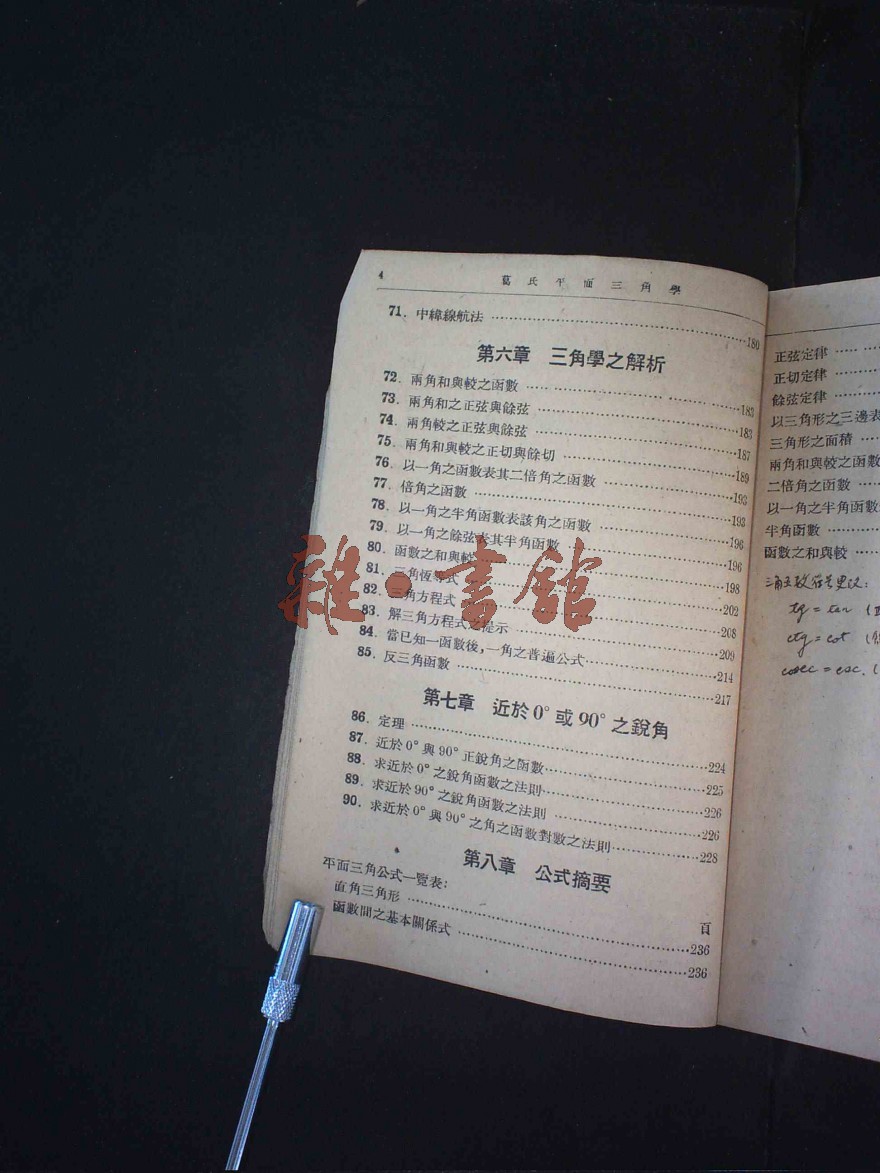 4
葛氏平面三角學
71. 中緯線航法 180
第六章 三角學之解析
72. 兩角和與較之函數 183
73. 兩角和之正弦與餘弦 183
74. 兩角較之正弦與餘弦 187
75. 兩角和與較之正切與餘切 189
76. 以一角之函數表其二倍角之函數 193
77. 倍角之函數 193
78. 以一角之半角函數表該角之函數 196
79. 以一角之餘弦表其半角函數 196
80. 函數之和與較 198
81. 三角恆等式 202
82. 三角方程式 208
83. 解三角方程式之提示 209
84. 當已知一函數後,一角之普遍公式 214
85. 反三角函數 217
第七章 近於0°或90°之銳角
86. 定理 224
87. 近於0°與90°正銳角之函數 225
88. 求近於0°之銳角函數之法則 226
89. 求近於90°之銳角函數之法則 226
90. 求近於0°與90°之角之函數對數之法則 228
第八章 公式摘要
平面三角公式一覽表:
頁
直角三角形 236
函數間之基本關係式 236
正弦定律
正切定律
餘弦定律
以三角形之三邊表
三角形之面積
兩角和與較之函數
二倍角之函數
以一角之半角函數
半角函數
函數之和與較
tg = tan
ctg = cot
cosec = csc.
雜·書館